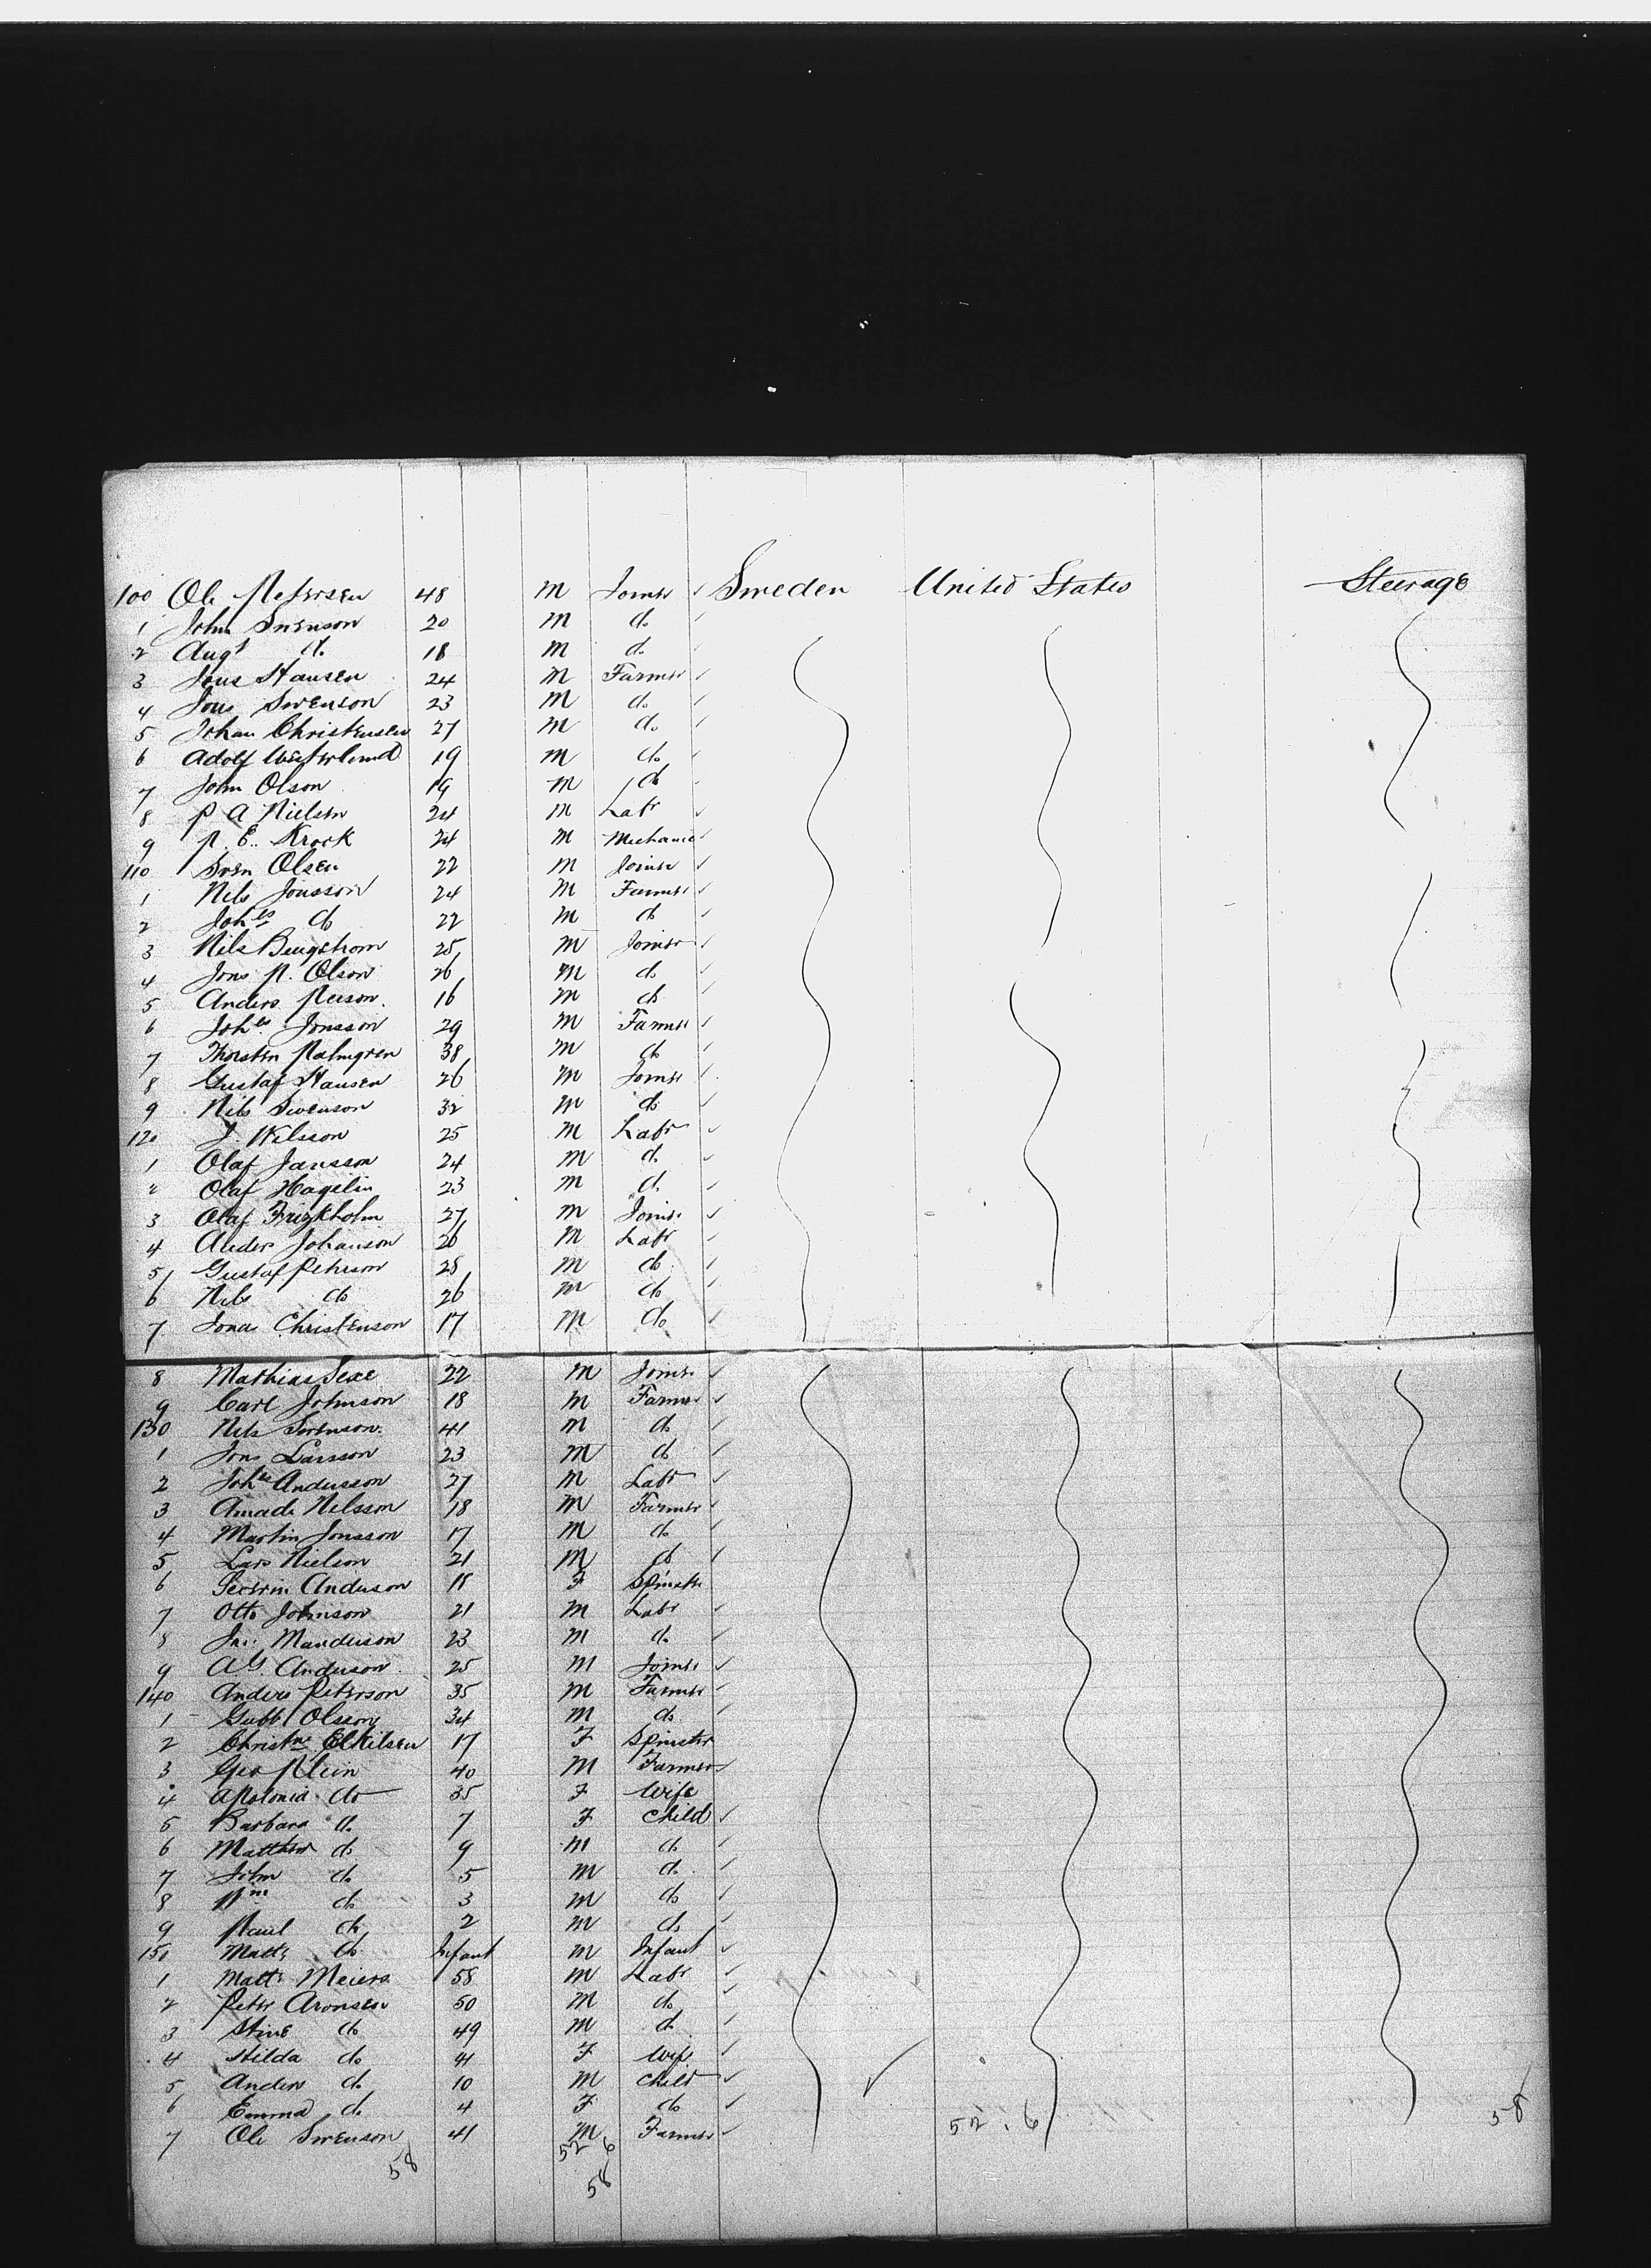 100 Ole Petersen 48 M Joiner ✓ Sweden United States Steerage
1 John Swenson 20 M do
2 Augt do 18 M do
3 Jons Hansen 24 M Farmer
4 Jons Swenson 23 M do
5 Johan Christensen 27 M do
6 Adolf Westerlund 19 M do
7 John Olson 19 M do
8 P A Nielsen 24 M Labr
9 P. E. Krock 24 M Mechanic
110 Sven Olsen 22 M Joiner
1 Nils Jonsson 24 M Farmer
2 Johes do 22 M do
3 Nils Bengstrom 25 M Joiner
4 Jons P. Olson 26 M do
5 Anders Person 16 M do
6 Johes Jonsson 29 M Farmer
7 Thorsten Palmgren 38 M do
8 Gustaf Hansen 26 M Joiner
9 Nils Swenson 32 M do
120 J. Nilsson 25 M Labr
1 Olaf Jansson 24 M do
2 Olaf Hagelin 23 M do
3 Olaf Frizkholm 27 M Joiner
4 Ander Johanson 26 M Labr
5 Gustaf Pehrson 28 M do
6 Nils do 26 M do
7 Jona Christenson 17 M do
8 Mathias 22 M Joiner
9 Carl Johnson 18 M Farmer
130 Nils Sorenson 41 M do
1 Jons Larsson 23 M do
2 Johes Andersson 27 M Labr
3 Amade Nelsson 18 M Farmer
4 Martin Jonsson 17 M do
5 Lars Nielson 21 M do
6 Anderson 18 F Spinster
7 Otto Johnson 21 M Labr
8 Manderson 23 M do
9 A G Anderson 25 M Joiner
140 Anders Peterson 35 M Farmer
1 Gubb Olsson 34 M do
2 Christne Elkilsen 17 F Spinster
3 Geo Klein 40 M Farmer
4 Apolonia do 35 F Wife
5 Barbara do 7 F Child
6 Matthew do 9 M do
7 John do 5 M do
8 Wm do 3 M do
9 Paul do 2 M do
150 Matts do Infant M Infant
1 Matts Meiers 58 M Labr
2 Peter Aronsen 50 M do
3 Stine do 49 M do
4 Hilda do 41 F Wife
5 Anders do 10 M Child
6 Emma do 4 F do
7 Ole Swenson 41 M Farmer
52 . 6 58
58 52 6
58